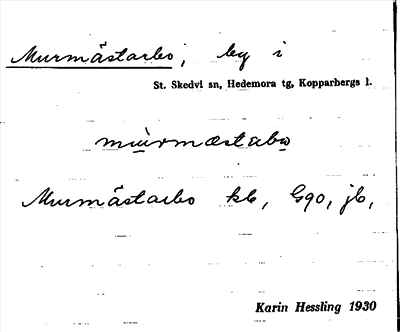 Murmästarbo, by i
St. Skedvi sn, Hedemora tg, Kopparbergs l.
mùrmæstabo
Murmästarbo kb, G90, jb,
Karin Hessling 1930